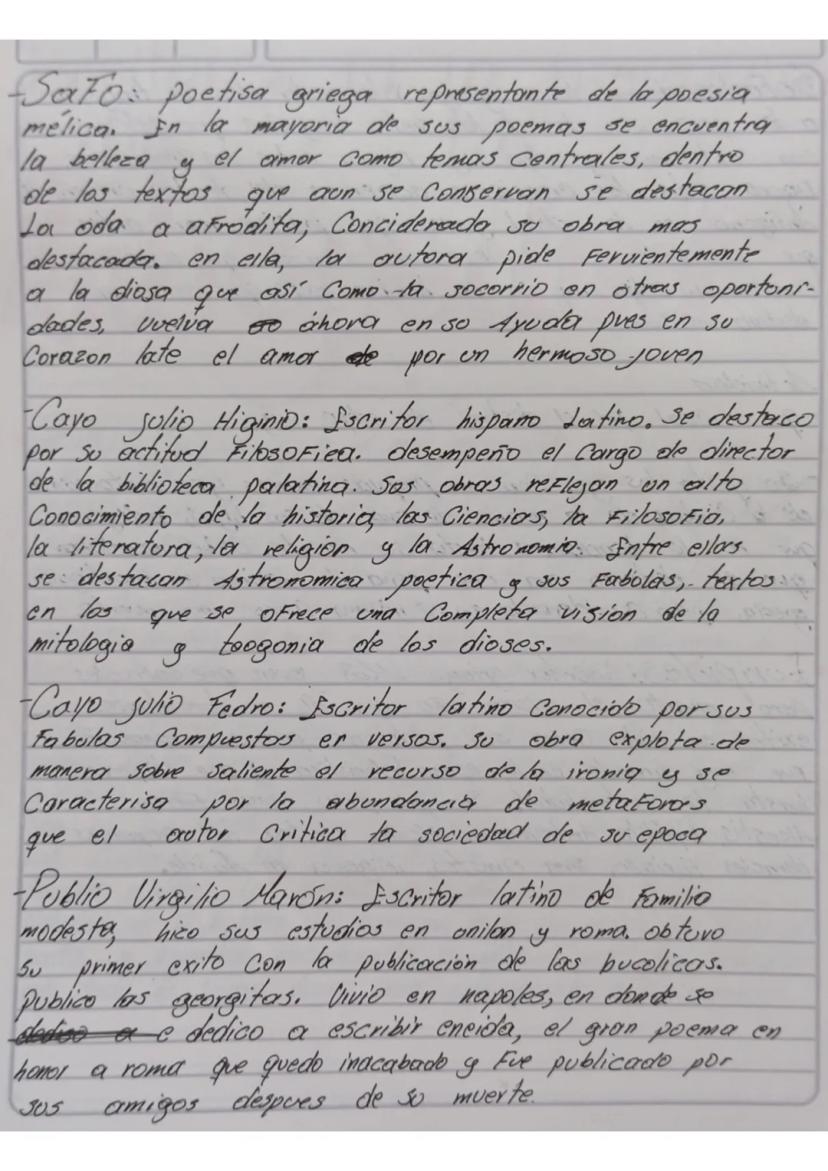 -Safo: poetisa griega representante de la poesia
mélica. En la mayoria de sus poemas se encuentra
la belleza y el amor como temas Centrales, dentro
de los textos que aun se Conservan se destacan
La oda a afrodita, Conciderada su obra mas
destacada. en ella, la autora pide Fervientemente
a la diosa que así Como la socorrio en otras oportuni-
dades, vuelva ahora en su Ayuda pues en su
Corazon late el amor por un hermoso joven
-Cayo julio Higinio: Escritor hispano Latino. se destaco
por su actitud FilosoFica. desempeño el Cargo de director
de la biblioteca palatina. Sus obras reFlejan un alto
Conocimiento de la historia, las Ciencias, la FilosoFia,
la literatura, la religion y la Astronomia. Entre ellas
se destacan Astronomica poetica y sus Fabulas, textos
en los que se oFrece una Completa vision de la
mitologia y teogonia de los dioses.
-Cayo julio Fedro: Escritor latino Conocido por sus
Fabulas Compuestas en versos. su obra explota de
manera sobre saliente el recurso de la ironia y se
Caracterisa por la abundancia de metaForas
que el autor Critica la sociedad de su epoca
-Publio Virgilio Marón: Escritor latino de Familia
modesta, hizo sus estudios en onilan y roma. obtuvo
su primer exito Con la publicación de las bucolicas.
publico las georgitas. Vivio en napoles, en donde se
e dedico a escribir eneida, el gran poema en
honor a roma que quedo inacabado y Fue publicado por
sus amigos despues de su muerte.